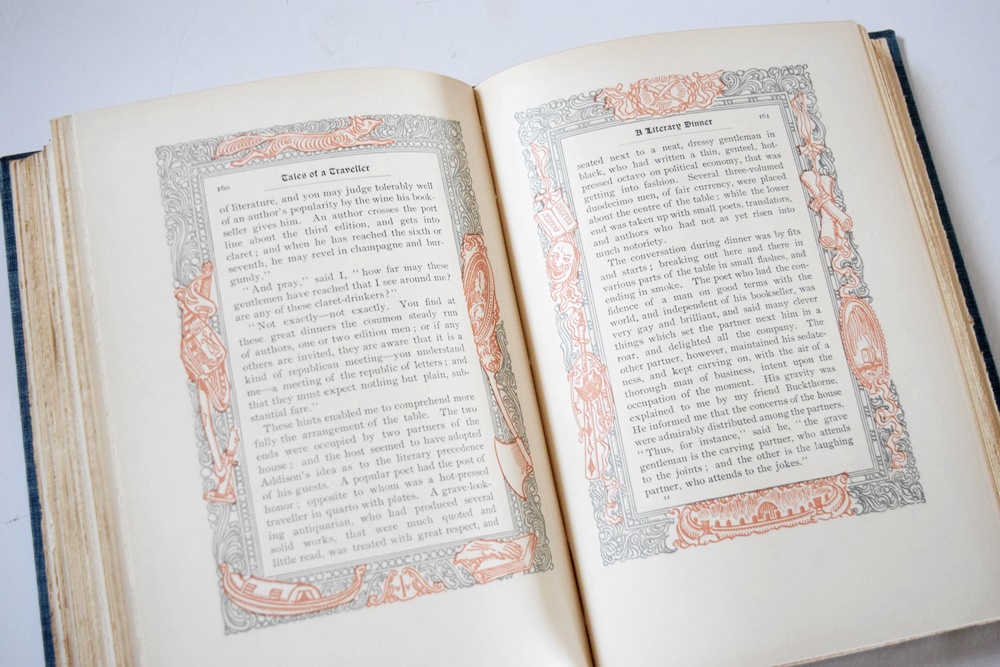 Tales of a Traveller
160
of literature, and you may judge tolerably well
of an author's popularity by the wine his book-
seller gives him. An author crosses the port
line about the third edition, and gets into
claret; and when he has reached the sixth or
seventh, he may revel in champagne and bur-
gundy."
"And pray," said I, "how far may these
gentlemen have reached that I see around me?
are any of these claret-drinkers?"
"Not exactly—not exactly. You find at
these great dinners the common steady run
of authors, one or two edition men; or if any
others are invited, they are aware that it is a
kind of republican meeting—you understand
me—a meeting of the republic of letters; and
that they must expect nothing but plain, sub-
stantial fare."
These hints enabled me to comprehend more
fully the arrangement of the table. The two
ends were occupied by two partners of the
house; and the host seemed to have adopted
Addison's idea as to the literary precedence
of his guests. A popular poet had the post of
honor; opposite to whom was a hot-pressed
traveller in quarto with plates. A grave-look-
ing antiquarian, who had produced several
solid works, that were much quoted and
little read, was treated with great respect, and
A Literary Dinner
161
seated next to a neat, dressy gentleman in
black, who had written a thin, genteel, hot-
pressed octavo on political economy, that was
getting into fashion. Several three-volumed
duodecimo men, of fair currency, were placed
about the centre of the table; while the lower
end was taken up with small poets, translators,
and authors who had not as yet risen into
much notoriety.
The conversation during dinner was by fits
and starts; breaking out here and there in
various parts of the table in small flashes, and
ending in smoke. The poet who had the con-
fidence of a man on good terms with the
world, and independent of his bookseller, was
very gay and brilliant, and said many clever
things which set the partner next him in a
roar, and delighted all the company. The
other partner, however, maintained his sedate-
ness, and kept carving on, with the air of a
thorough man of business, intent upon the
occupation of the moment. His gravity was
explained to me by my friend Buckthorne.
He informed me that the concerns of the house
were admirably distributed among the partners.
"Thus, for instance," said he, "the grave
gentleman is the carving partner, who attends
to the joints; and the other is the laughing
partner, who attends to the jokes."
"